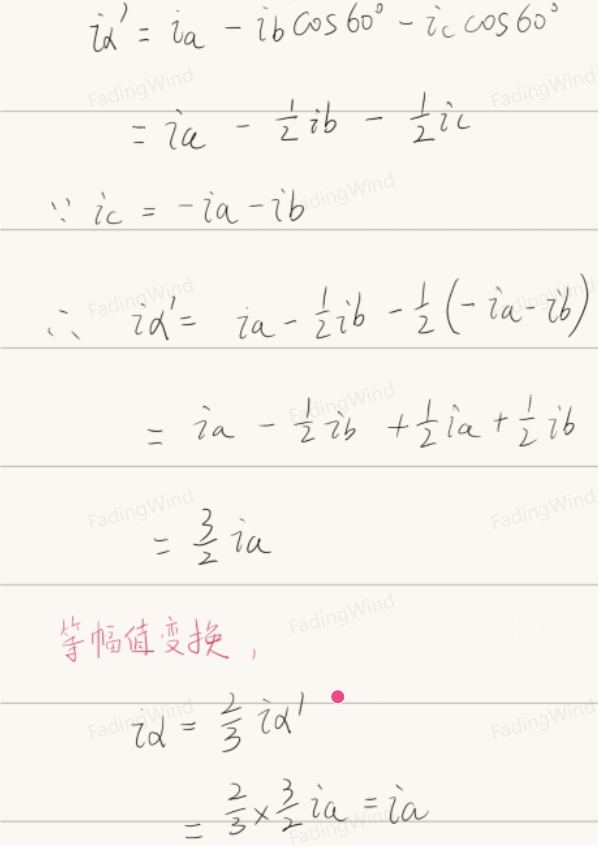 iα' = ia - ib cos60° - ic cos60°
= ia - 1/2 ib - 1/2 ic
∵ ic = -ia - ib
∴ iα' = ia - 1/2 ib - 1/2 (-ia - ib)
= ia - 1/2 ib + 1/2 ia + 1/2 ib
= 3/2 ia
等幅值变换，
iα = 2/3 iα'
= 2/3 × 3/2 ia = ia
FadingWind
FadingWind
FadingWind
FadingWind
FadingWind
FadingWind
FadingWind
FadingWind
FadingWind
FadingWind
FadingWind
FadingWind